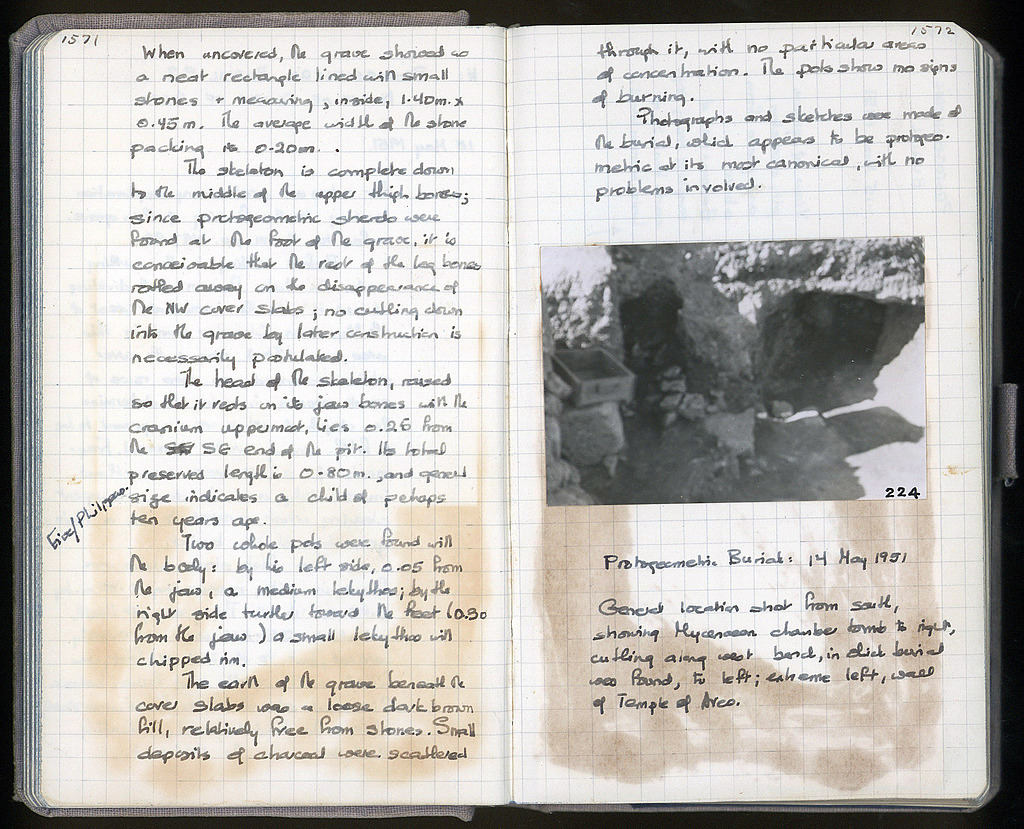 1571
When uncovered, the grave showed as
a neat rectangle lined with small
stones + measuring, inside, 1.40m. x
0.45 m. The average width of the stone
packing is 0.20m.
The skeleton is complete down
to the middle of the upper thigh bones;
since protogeometric sherds were
found at the foot of the grave, it is
conceivable that the rest of the leg bones
rotted away on the disappearance of
the NW cover slabs; no cutting down
into the grave by later construction is
necessarily postulated.
The head of the skeleton, raised
so that it rests on its jaw bones with the
cranium uppermost, lies 0.25 from
the SE end of the pit. Its total
preserved length is 0.80 m., and general
size indicates a child of perhaps
ten years age.
Two whole pots were found with
the body: by his left side, 0.05 from
the jaw, a medium lekythos; by the
right side further toward the feet (0.30
from the jaw) a small lekythos with
chipped rim.
The earth of the grave beneath the
cover slabs was a loose dark brown
fill, relatively free from stones. Small
deposits of charcoal were scattered
1572
through it, with no particular areas
of concentration. The pots show no signs
of burning.
Photographs and sketches were made of
the burial, which appears to be protogeo-
metric at its most canonical, with no
problems involved.
224
Protogeometric Burial: 14 May 1951
General location shot from south,
showing Mycenaean chamber tomb to right,
cutting along west bend, in which burial
was found, to left; extreme left, wall
of Temple of Ares.